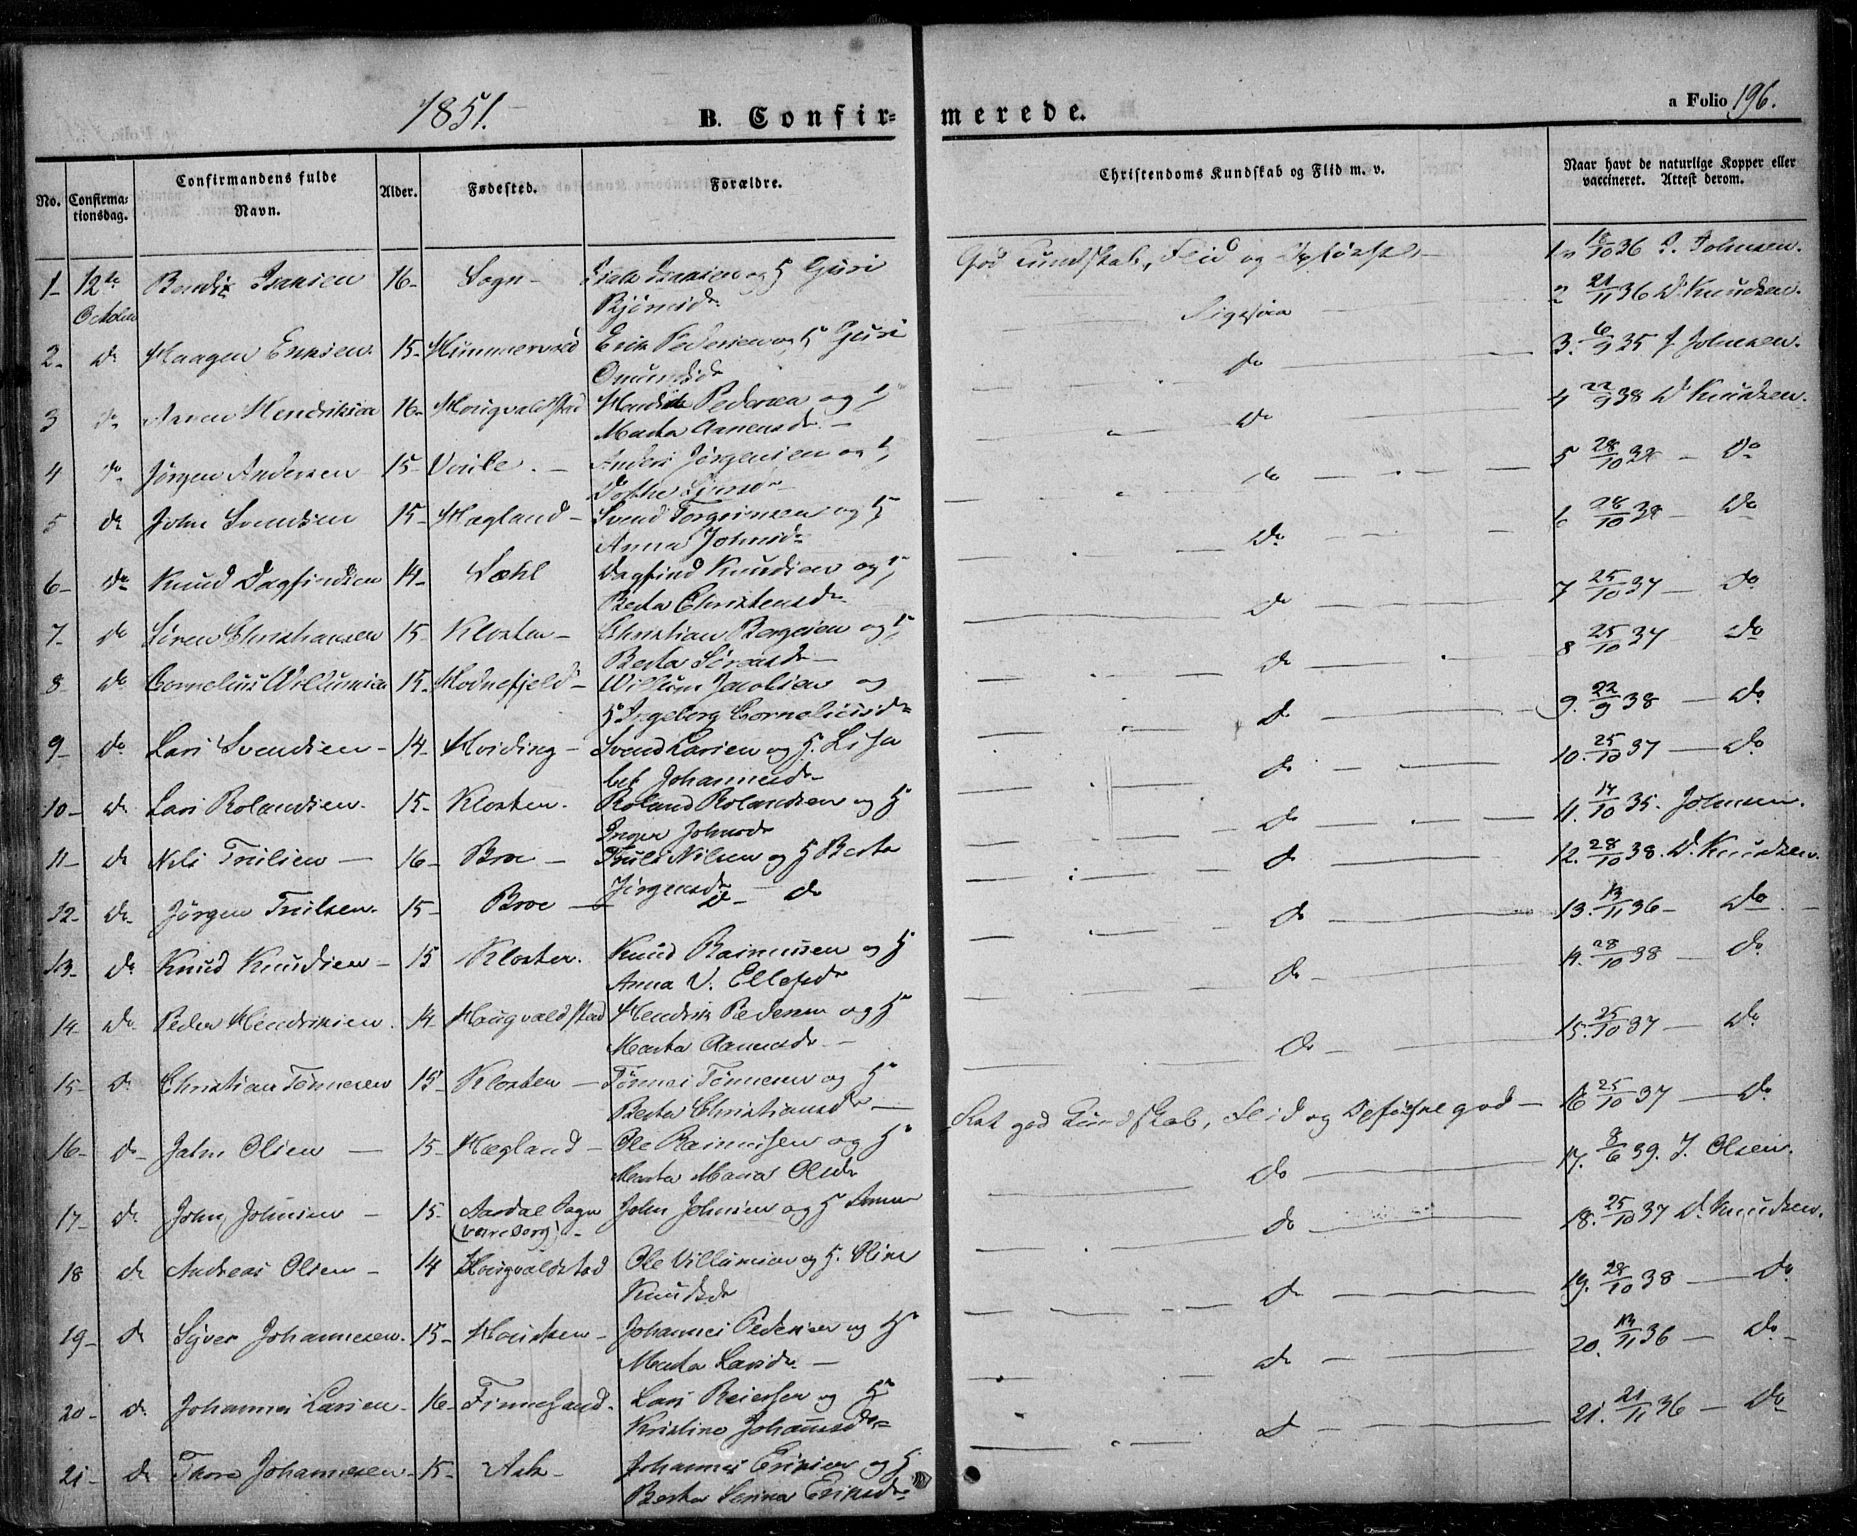 1851.
B. Confir-
merede.
a Folio 196.
No.
Confirma-
tionsdag.
Confirmandens fulde
Navn.
Alder.
Fødested.
Forældre.
Christendoms Kundskab og Flid m. v.
Naar havt de naturlige Kopper eller
vaccineret. Attest derom.
1- 12te 16- Sogn - og H Guri
October
God Kundskab, Flid og Opførsel - 1- 18/10 36 J. Johnsen.
2- do Haagen 15- Hummervold Erik Pedersen og H Guri
Omundsdr
Ligesaa 2 21/11 36 D. Knudsen.
3 do Hendriksen 16- Hougvaldstad Hendrik Pedersen og H
Marta
do 3. 6/9 35 J Johnsen.
4 do Jørgen Andersen 15- Voule. - Anders Jørgensen og H
Dorthe
do 4 22/9 38 D Knudsen.
5 do John Svendsen 15- Hagland - Svend Torgersen og H
Anna Johnsdr
do 5 28/10 38 - Do
6- do Knud Dagfindsen 14- Dagfind Knudsen og H
Berta Christensdr
Do 6 28/10 38 - Do
7- do Søren Christiansen 15- Kloster - Christian Børgesen og H
Berta Sørensdr -
do 7 25/10 37 - Do
8- do Cornelius Willumsen 15- Hodnefjeld - Willum Jacobsen og
H Ingeborg Corneliusdr
do 8 25/10 37 Do
9- do Lars Svendsen - 14- Hviding - Svend Larsen og H. Lisa
bet Johannesdr
do 9. 22/9 38 - Do
10- do Lars Rolandsen. 15- Kloster. Roland Rolandsen og H
Inger Johnsdr
do 10. 25/10 37 - Do
11- do Nils Truilsen - 16- Broe - Truls Nilsen og H Berta
Jørgensdr
do 11. 14/10 35. Johnsen.
12- do Jørgen Truilsen. 15- Broe - do - do
do 12. 28/10 38. D. Knudsen.
13- do Knud Knudsen - 15 Kloster. Knud Rasmussen og H
Anna V. Ellefsdr
do 13. 13/11 36 - Do
14- do Peder Hendriksen. 14- Hougvaldstad Hendrik Pedersen og H
Marta -
do 14. 28/10 38 - Do
15- do Christian Tønnesen 15- Kloster - Tønnes Tønnesen og H
Berta Christiansdr -
do 15. 25/10 37 - Do
16- do John Olsen - 15- Hægland - Ole Rasmussen og H
Marta Maria Olsdr
god Kundskab, Flid og Opførsel god - 16 25/10 37 - Do
17- do John Johnsen - 15- Aardal Sogn John Johnsen og H Anna
do 17. 8/6 39. J. Olsen.
18 do Andreas Olsen - 14 Hougvaldstad Ole Villumsen og H.
Knudsdr
do 18. 25/10 37 D. Knudsen.
19- do Syver Johannesen. 15- Housken - Johannes Pedersen og H
Marta Larsdr -
do 19. 28/10 38 - Do
20- do Johannes Larsen. 16- Finnesand. Lars Reiersen og H
Kristine Johannesdr
do 20. 13/11 36 - Do
21- do Thore Johannesen. 15- Ask - Johannes Eriksen og H
Berta Serina Eriksdr
do 21. 21/11 36 - Do